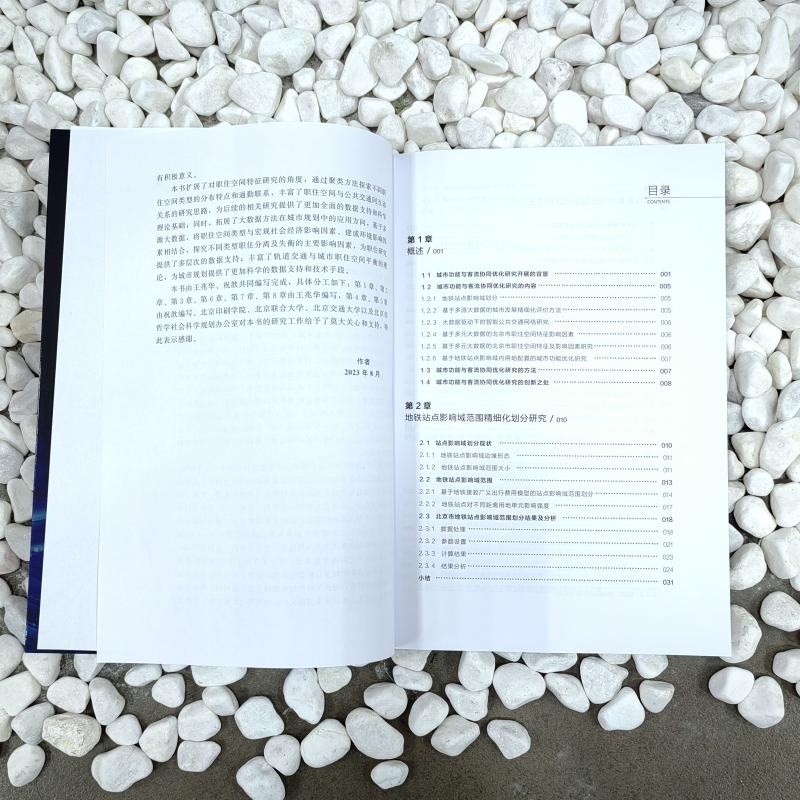 有积极意义。
本书扩展了对职住空间特征研究的角度，通过聚类方法探索不同职
住空间类型的分布特点和通勤联系，丰富了职住空间与公共交通间互动
关系的研究思路，为后续的相关研究提供了更加全面的数据支持和科学
理论基础；同时，拓展了大数据方法在城市规划中的应用方向，基于多
源大数据，将职住空间类型与宏观社会经济影响因素、建成环境影响因
素相结合，探究不同类型职住分离及失衡的主要影响因素，为职住研究
提供了多层次的数据支持；丰富了轨道交通与城市职住空间平衡的理
论，为城市规划提供了更加科学的数据支持和技术手段。
本书由王兆华、祝歆共同编写完成，具体分工如下：第1章、第2
章、第3章、第6章、第7章、第8章由王兆华编写，第4章、第5章
由祝歆编写。北京印刷学院、北京联合大学、北京交通大学以及北京市
哲学社会科学规划办公室对本书的研究工作给予了莫大关心和支持，特
此表示感谢。
作者
2023年8月
目录
CONTENTS
第1章
概述 / 001
1.1 城市功能与客流协同优化研究开展的背景 001
1.2 城市功能与客流协同优化研究的内容 005
1.2.1 地铁站点影响域划分 005
1.2.2 基于多源大数据的城市发展精细化评价方法 005
1.2.3 大数据驱动下的智能公共交通网络研究 006
1.2.4 基于多元大数据的北京市职住空间特征及影响因素 006
1.2.5 基于多元大数据的北京市职住空间特征及影响因素研究 006
1.2.6 基于地铁站点影响域内用地配置的城市功能优化研究 007
1.3 城市功能与客流协同优化研究的方法 007
1.4 城市功能与客流协同优化研究的创新之处 008
第2章
地铁站点影响域范围精细化划分研究 / 010
2.1 站点影响域划分现状 010
2.1.1 地铁站点影响域边缘形态 011
2.1.2 地铁站点影响域范围大小 011
2.2 地铁站点影响域范围 013
2.2.1 基于地铁接驳广义出行费用模型的站点影响域范围划分 014
2.2.2 地铁站点对不同距离用地单元影响强度 017
2.3 北京市地铁站点影响域范围划分结果及分析 018
2.3.1 数据处理 018
2.3.2 参数设置 021
2.3.3 计算结果 023
2.3.4 结果分析 024
小结 031